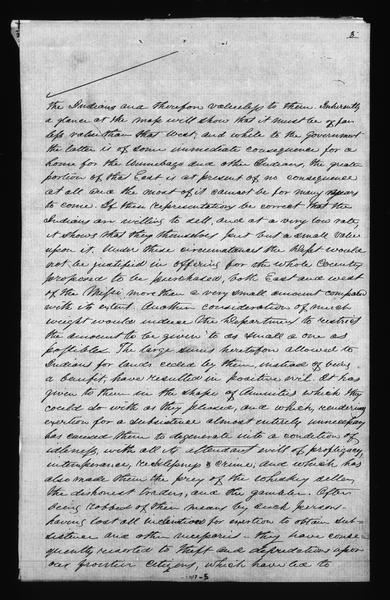 3
the Indians and therefore valueless to them. Inherently
a glance at the map will show that it must be of far
less value than that West, and while to the government
the latter is of some immediate consequence for a
home for the Winnebago and other Indians, the greater
portion of the East is at present of no consequence
at all and the most of it cannot be for many years
to come. If then representations be correct that the
Indians are willing to sell, and at a very low rate,
it shows that they themselves put but a small value
upon it. Under these circumstances the Dept would
not be justified in offering for the whole Country
proposed to be purchased, both East and west
of the Missi more than a very small amount compared
with its extent. Another consideration of much
weight would induce the Department to restrict
the amount to be given to as small a one as
possible. The large sums heretofore allowed to
Indians for lands ceded by them instead of being
a benefit, have resulted in positive evil. It has
given to them in the shape of Annuities which they
could do with as they pleased, and which, rendering
exertion for a subsistence almost entirely unnecessary
has caused them to degenerate into a condition of
idleness, with all its attendant evils of profligacy,
intemperance, recklessness & crime, and which has
also made them the prey of the whiskey seller,
the dishonest traders, and the gambler. After
being robbed of their means by such persons
having lost all inducement for exertion to obtain sub-
sistence and other necessaries - they have conse-
quently resorted to theft and depredations upon
our frontier citizens, which have led to